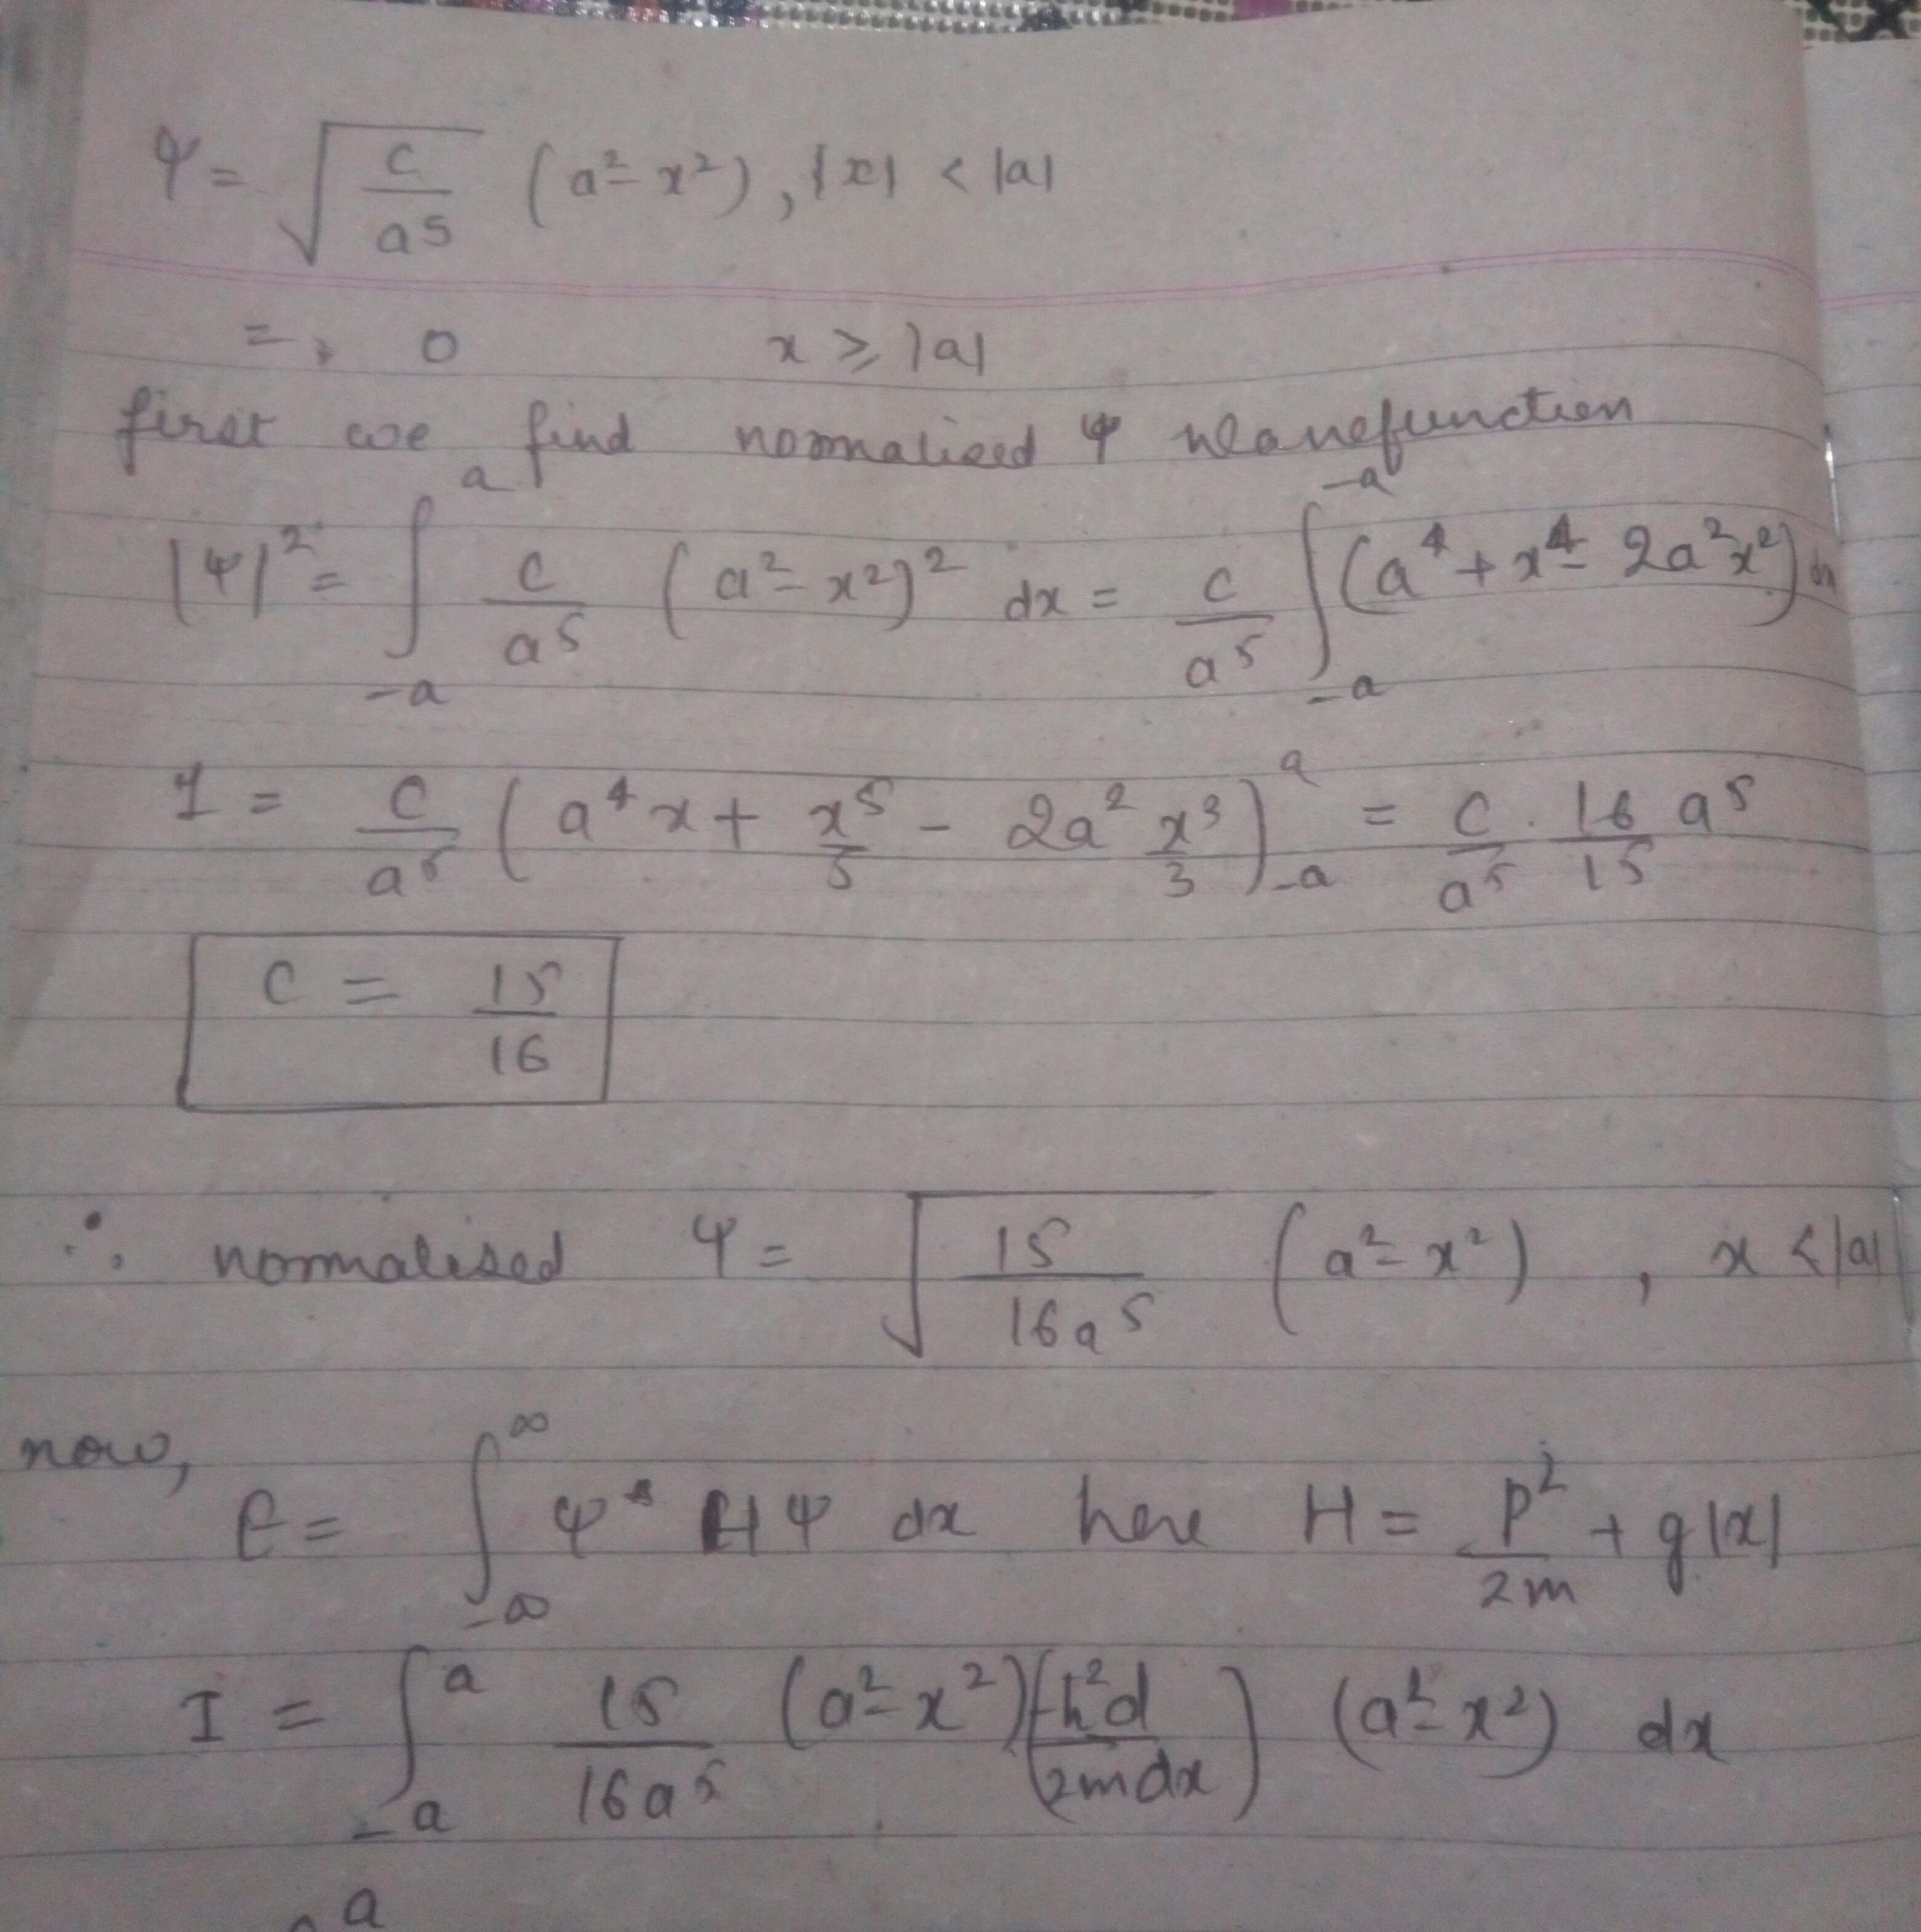 ψ = √(c/a⁵) (a² - x²), |x| < |a|
= , 0 x ≥ |a|
first we find normalised ψ wavefunction
|ψ|² = ∫_{-a}^{a} c/a⁵ (a² - x²)² dx = c/a⁵ ∫_{-a}^{-a} (a⁴ + x⁴ - 2a²x²) dx
1 = c/a⁵ (a⁴x + x⁵/5 - 2a² x³/3)_{-a}^{a} = c/a⁵ · 16/15 a⁵
c = 15/16
∴ normalised ψ = √(15/16a⁵) (a² - x²) , x < |a|
now,
E = ∫_{-∞}^{∞} ψ* H ψ dx here H = p²/2m + g|x|
I = ∫_{-a}^{a} 15/16a⁵ (a² - x²) (-ħ²d/2mdx) (a² - x²) dx
a